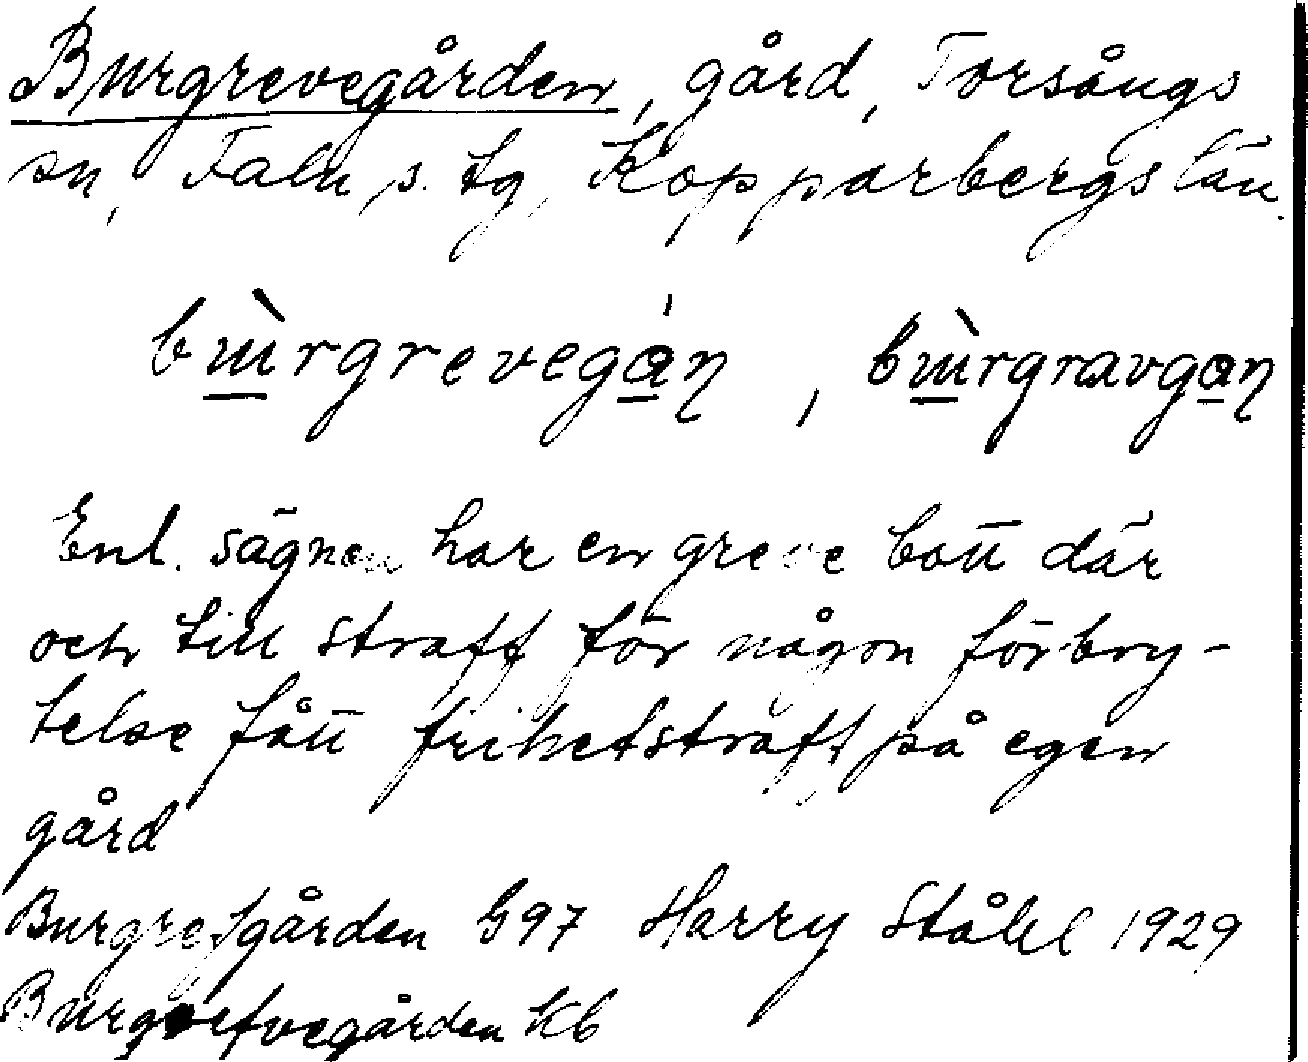 Burgrevegården, gård, Torsångs
sn, Falu s. tg, Kopparbergs län.
bɯ̀rgrevegán, bɯ̀rgravgan
Enl. sägnen har en greve bott där
och till straff för någon förbry-
telse fått frihetstraff på egen
gård
Burgrefgården G97 Harry Ståhl 1929
Burgrefvegården Kb